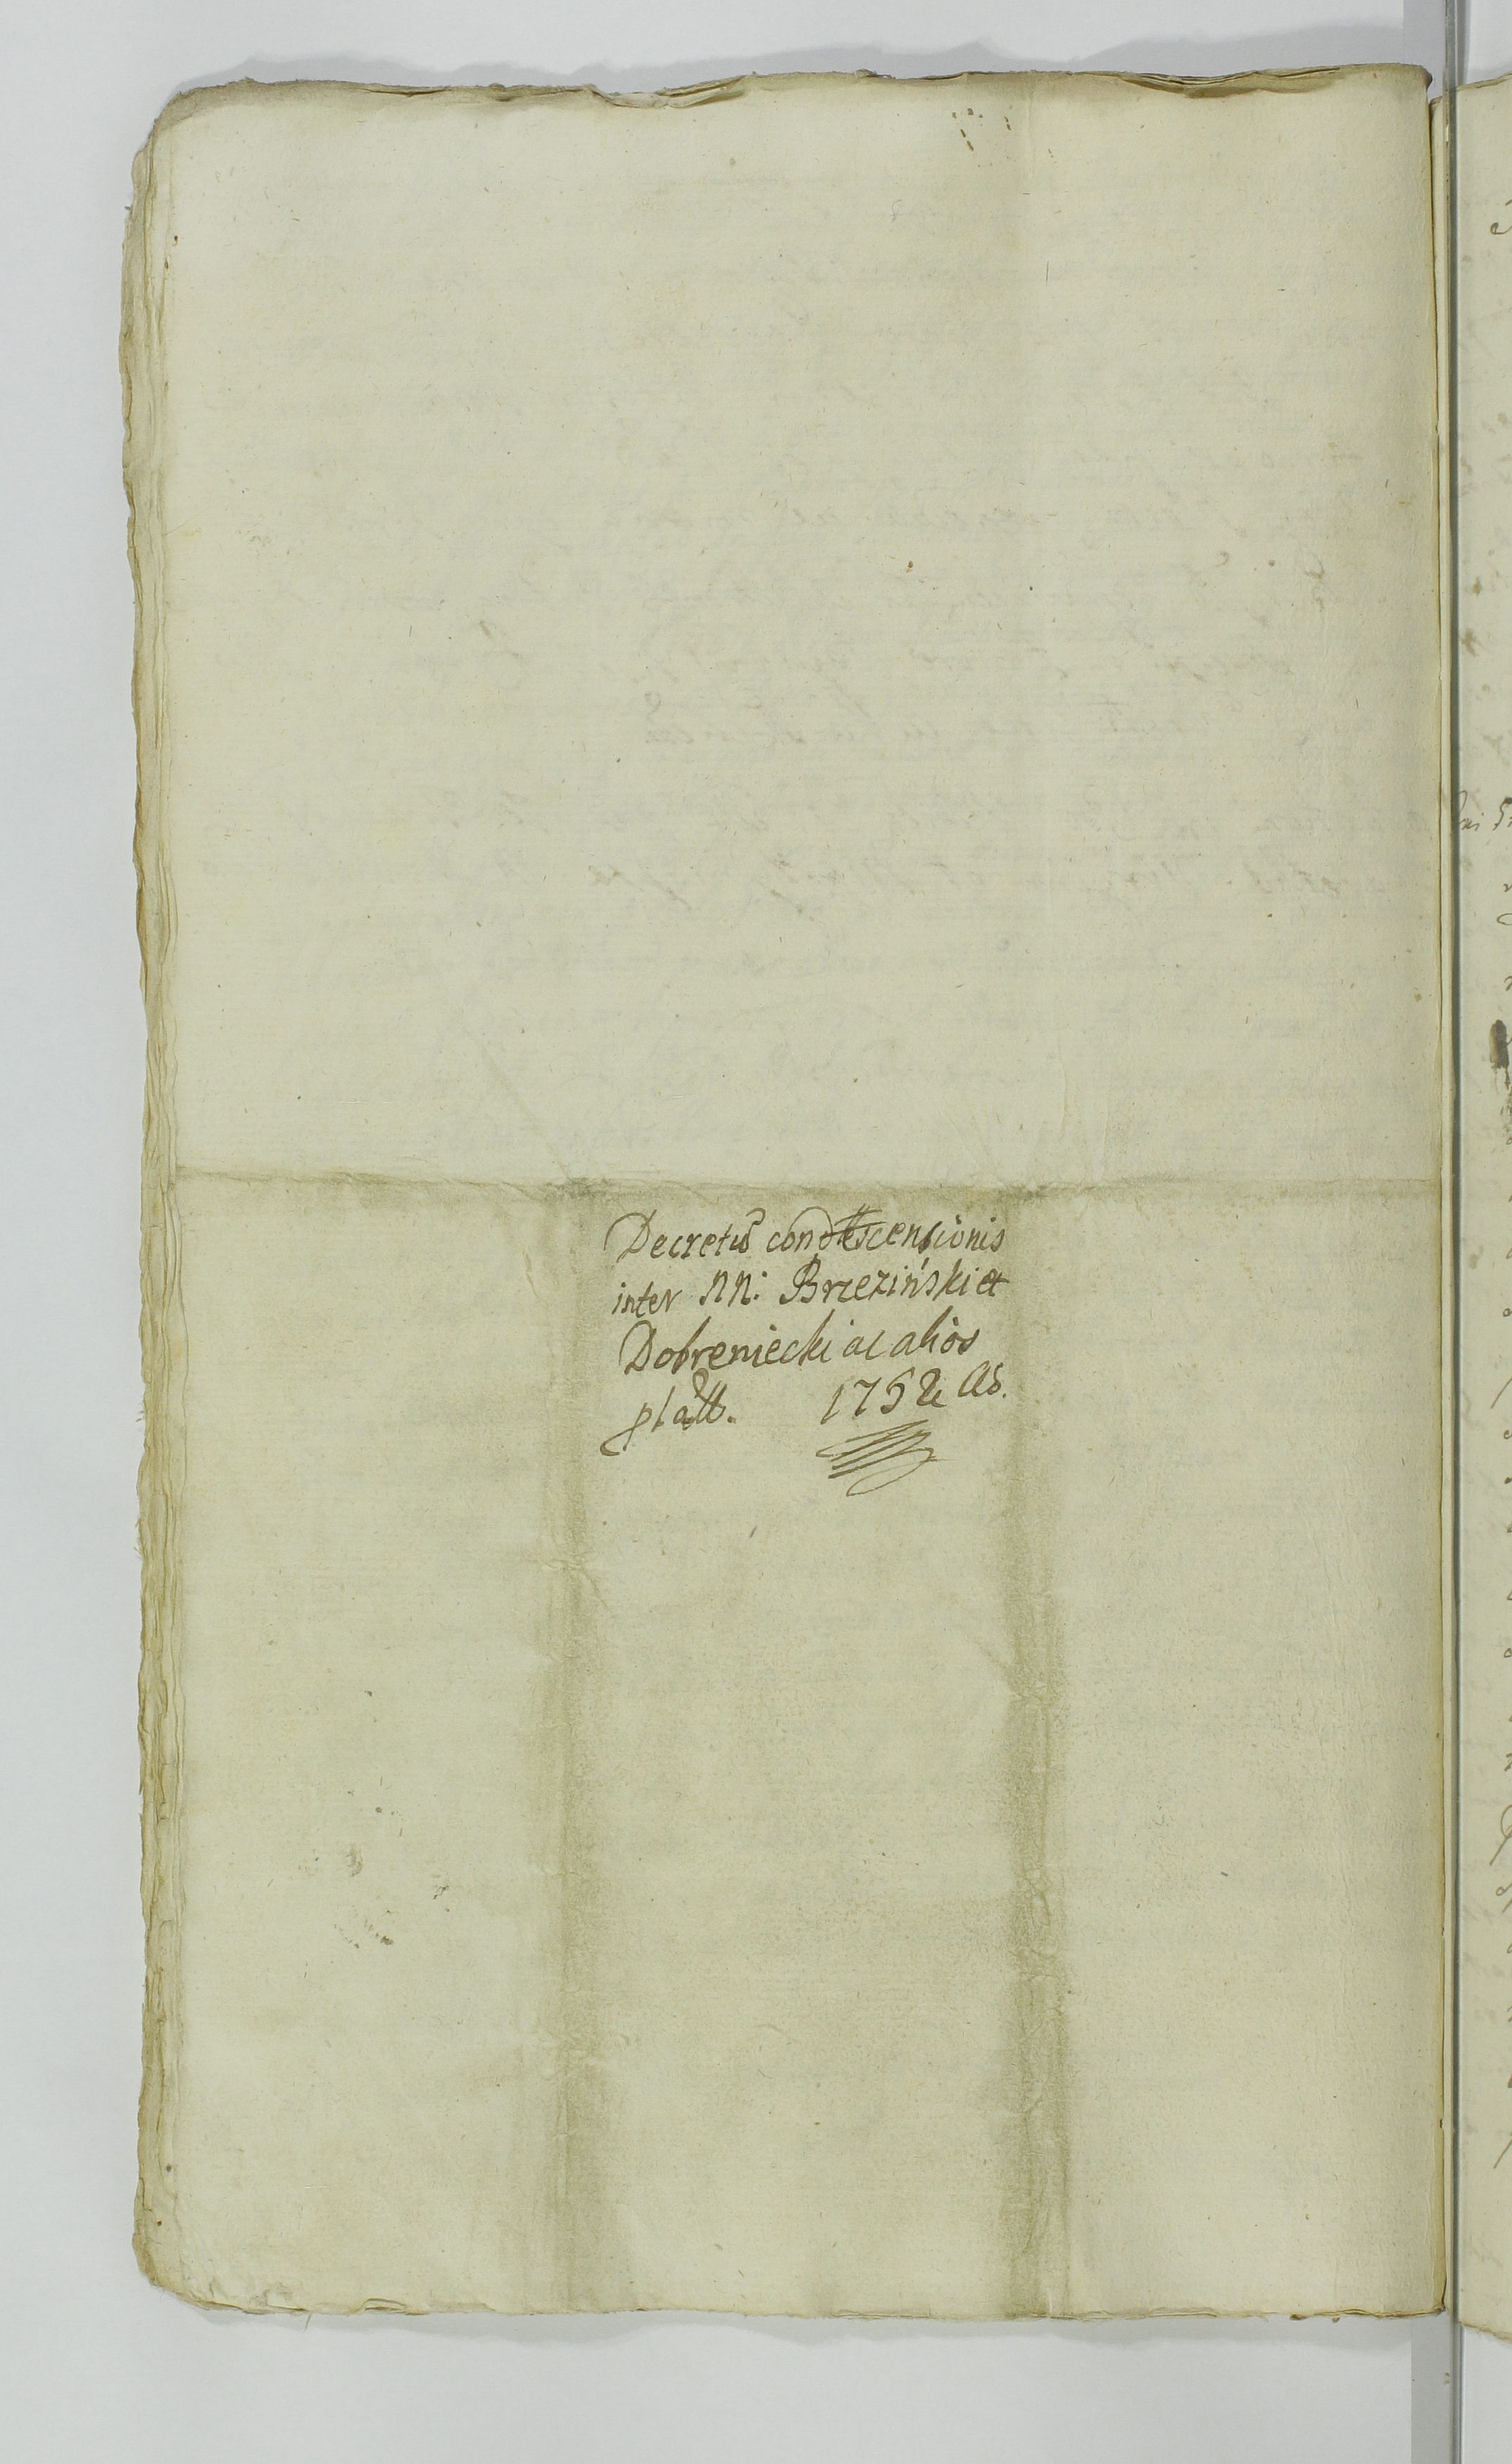 Decretũ condescensionis
inter NN: Brzezinśki et
Dobreniecki ac alios
1752